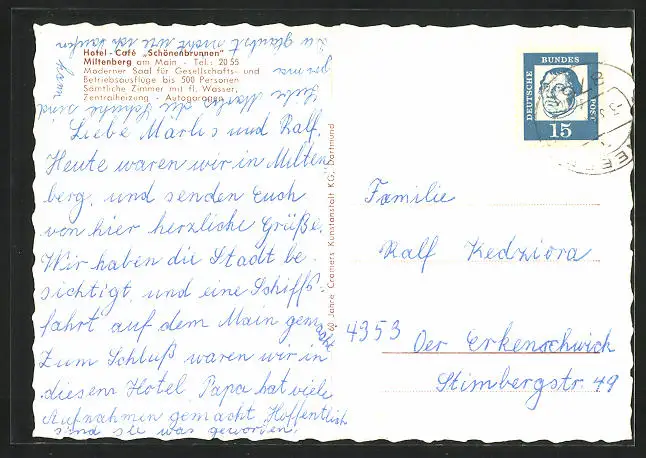 Hotel-Café "Schönenbrunnen"
Miltenberg am Main - Tel.: 2055
Moderner Saal für Gesellschafts- und
Betriebsausflüge bis 500 Personen
Sämtliche Zimmer mit fl. Wasser,
Zentralheizung - Autogaragen
Liebe Marlis und Ralf,
Heute waren wir in Milten
berg, und senden Euch
von hier herzliche Grüße.
Wir haben die Stadt be
sichtigt, und eine Schiffs-
fahrt auf dem Main gemacht
Zum Schluß waren wir in
diesem Hotel Papa hat viele
Aufnahmen gemacht Hoffentlich
sind sie was geworden.
Du glaubst nicht wie ich laufen
kann
60 Jahre Cramers Kunstanstalt KG, Dortmund
DEUTSCHE BUNDES POST
15
Familie
Ralf Kedziora
4353 Oer Erkenschwich
Stimbergstr. 49